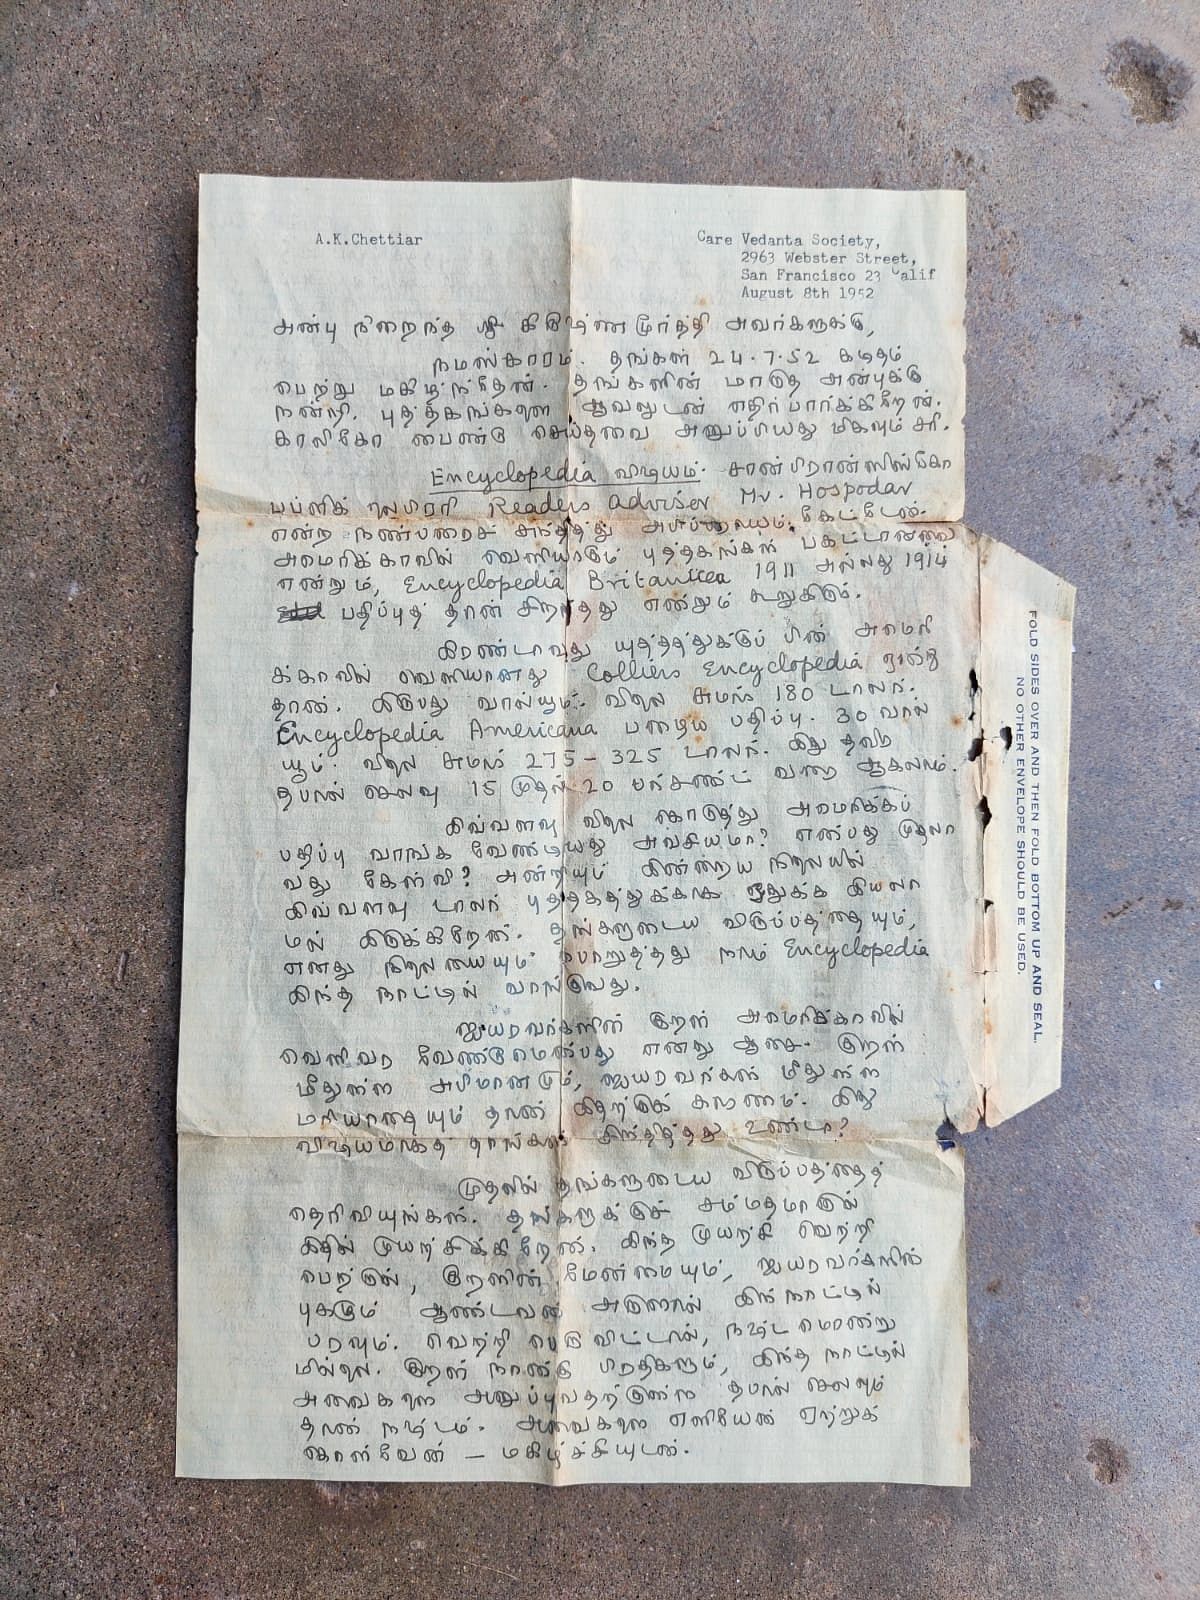 A.K.Chettiar
Care Vedanta Society,
2963 Webster Street,
San Francisco 23 Calif
August 8th 1952
அன்பு நிறைந்த ஸ்ரீ கிருஷ்ணமூர்த்தி அவர்களுக்கு,
நமஸ்காரம். தங்கள் 24.7.52 கடிதம்
பெற்று மகிழ்ந்தேன். தங்களின் மாறாத அன்புக்கு
நன்றி. புத்தகங்களை ஆவலுடன் எதிர்பார்க்கிறேன்.
காலிகோ பைண்டு செய்தவை அனுப்பியது மிகவும் சரி.
Encyclopedia விஷயம். சான்பிரான்ஸிஸ்கோ
பப்ளிக் லைபிரரி Readers adviser Mr. Hospodar
என்ற நண்பரைச் சந்தித்து அபிப்பிராயம் கேட்டேன்.
அமெரிக்காவில் வெளியாகும் புத்தகங்கள் பகட்டானவை
என்றும், Encyclopedia Britanica 1911 அல்லது 1914
பதிப்புத் தான் சிறந்தது என்றும் கூறுகிறார்.
இரண்டாவது யுத்தத்துக்குப் பின் அமெரி
க்காவில் வெளியானது Colliers Encyclopedia ஒன்று
தான். இருபது வால்யூம். விலை சுமார் 180 டாலர்.
Encyclopedia Americana பழைய பதிப்பு. 30 வால்
யூம். விலை சுமார் 275 - 325 டாலர். இது தவிர
தபால் செலவு 15 முதல் 20 பர்சண்ட் வரை ஆகலாம்.
இவ்வளவு விலை கொடுத்து அமெரிக்கப்
பதிப்பு வாங்க வேண்டியது அவசியமா? என்பது முதலா
வது கேள்வி? அன்றியும் இன்றைய நிலையில்
இவ்வளவு டாலர் புத்தகத்துக்காக ஒதுக்க இயலா
மல் இருக்கிறேன். தங்களுடைய விருப்பத்தையும்,
எனது நிலையையும் பொறுத்தது நாம் Encyclopedia
இந்த நாட்டில் வாங்குவது.
ஐயரவர்களின் குறள் அமெரிக்காவில்
வெளிவர வேண்டுமென்பது எனது ஆசை. குறள்
மீதுள்ள அபிமானமும், ஐயரவர்கள் மீதுள்ள
மரியாதையும் தான் இதற்குக் காரணம். இது
விஷயமாகத் தாங்கள் சிந்தித்தது உண்டா?
முதலில் தங்களுடைய விருப்பத்தைத்
தெரிவியுங்கள். தங்களுக்குச் சம்மதமானால்
இதில் முயற்சிக்கிறேன். இந்த முயற்சி வெற்றி
பெற்றால், குறளின் மேன்மையும், ஐயரவர்களின்
புகழும் ஆண்டவன் அருளால் இந்நாட்டில்
பரவும். வெற்றி பெறாவிட்டால், நஷ்டமொன்று
மில்லை. குறள் நான்கு பிரதிகளும், இந்த நாட்டில்
அவைகளை அனுப்புவதற்குண்டான தபால் செலவும்
தான் நஷ்டம். அவைகளை எளியேன் ஏற்றுக்
கொள்வேன் — மகிழ்ச்சியுடன்.
FOLD SIDES OVER AND THEN FOLD BOTTOM UP AND SEAL.
NO OTHER ENVELOPE SHOULD BE USED.